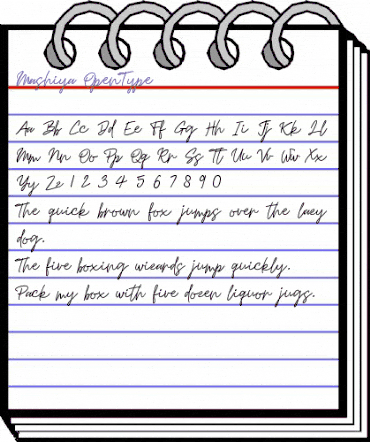 Mashiya OpenType
Aa Bb Cc Dd Ee Ff Gg Hh Ii Jj Kk Ll
Mm Nn Oo Pp Qq Rr Ss Tt Uu Vv Ww Xx
Yy Zz 1 2 3 4 5 6 7 8 9 0
The quick brown fox jumps over the lazy
dog.
The five boxing wizards jump quickly.
Pack my box with five dozen liquor jugs.